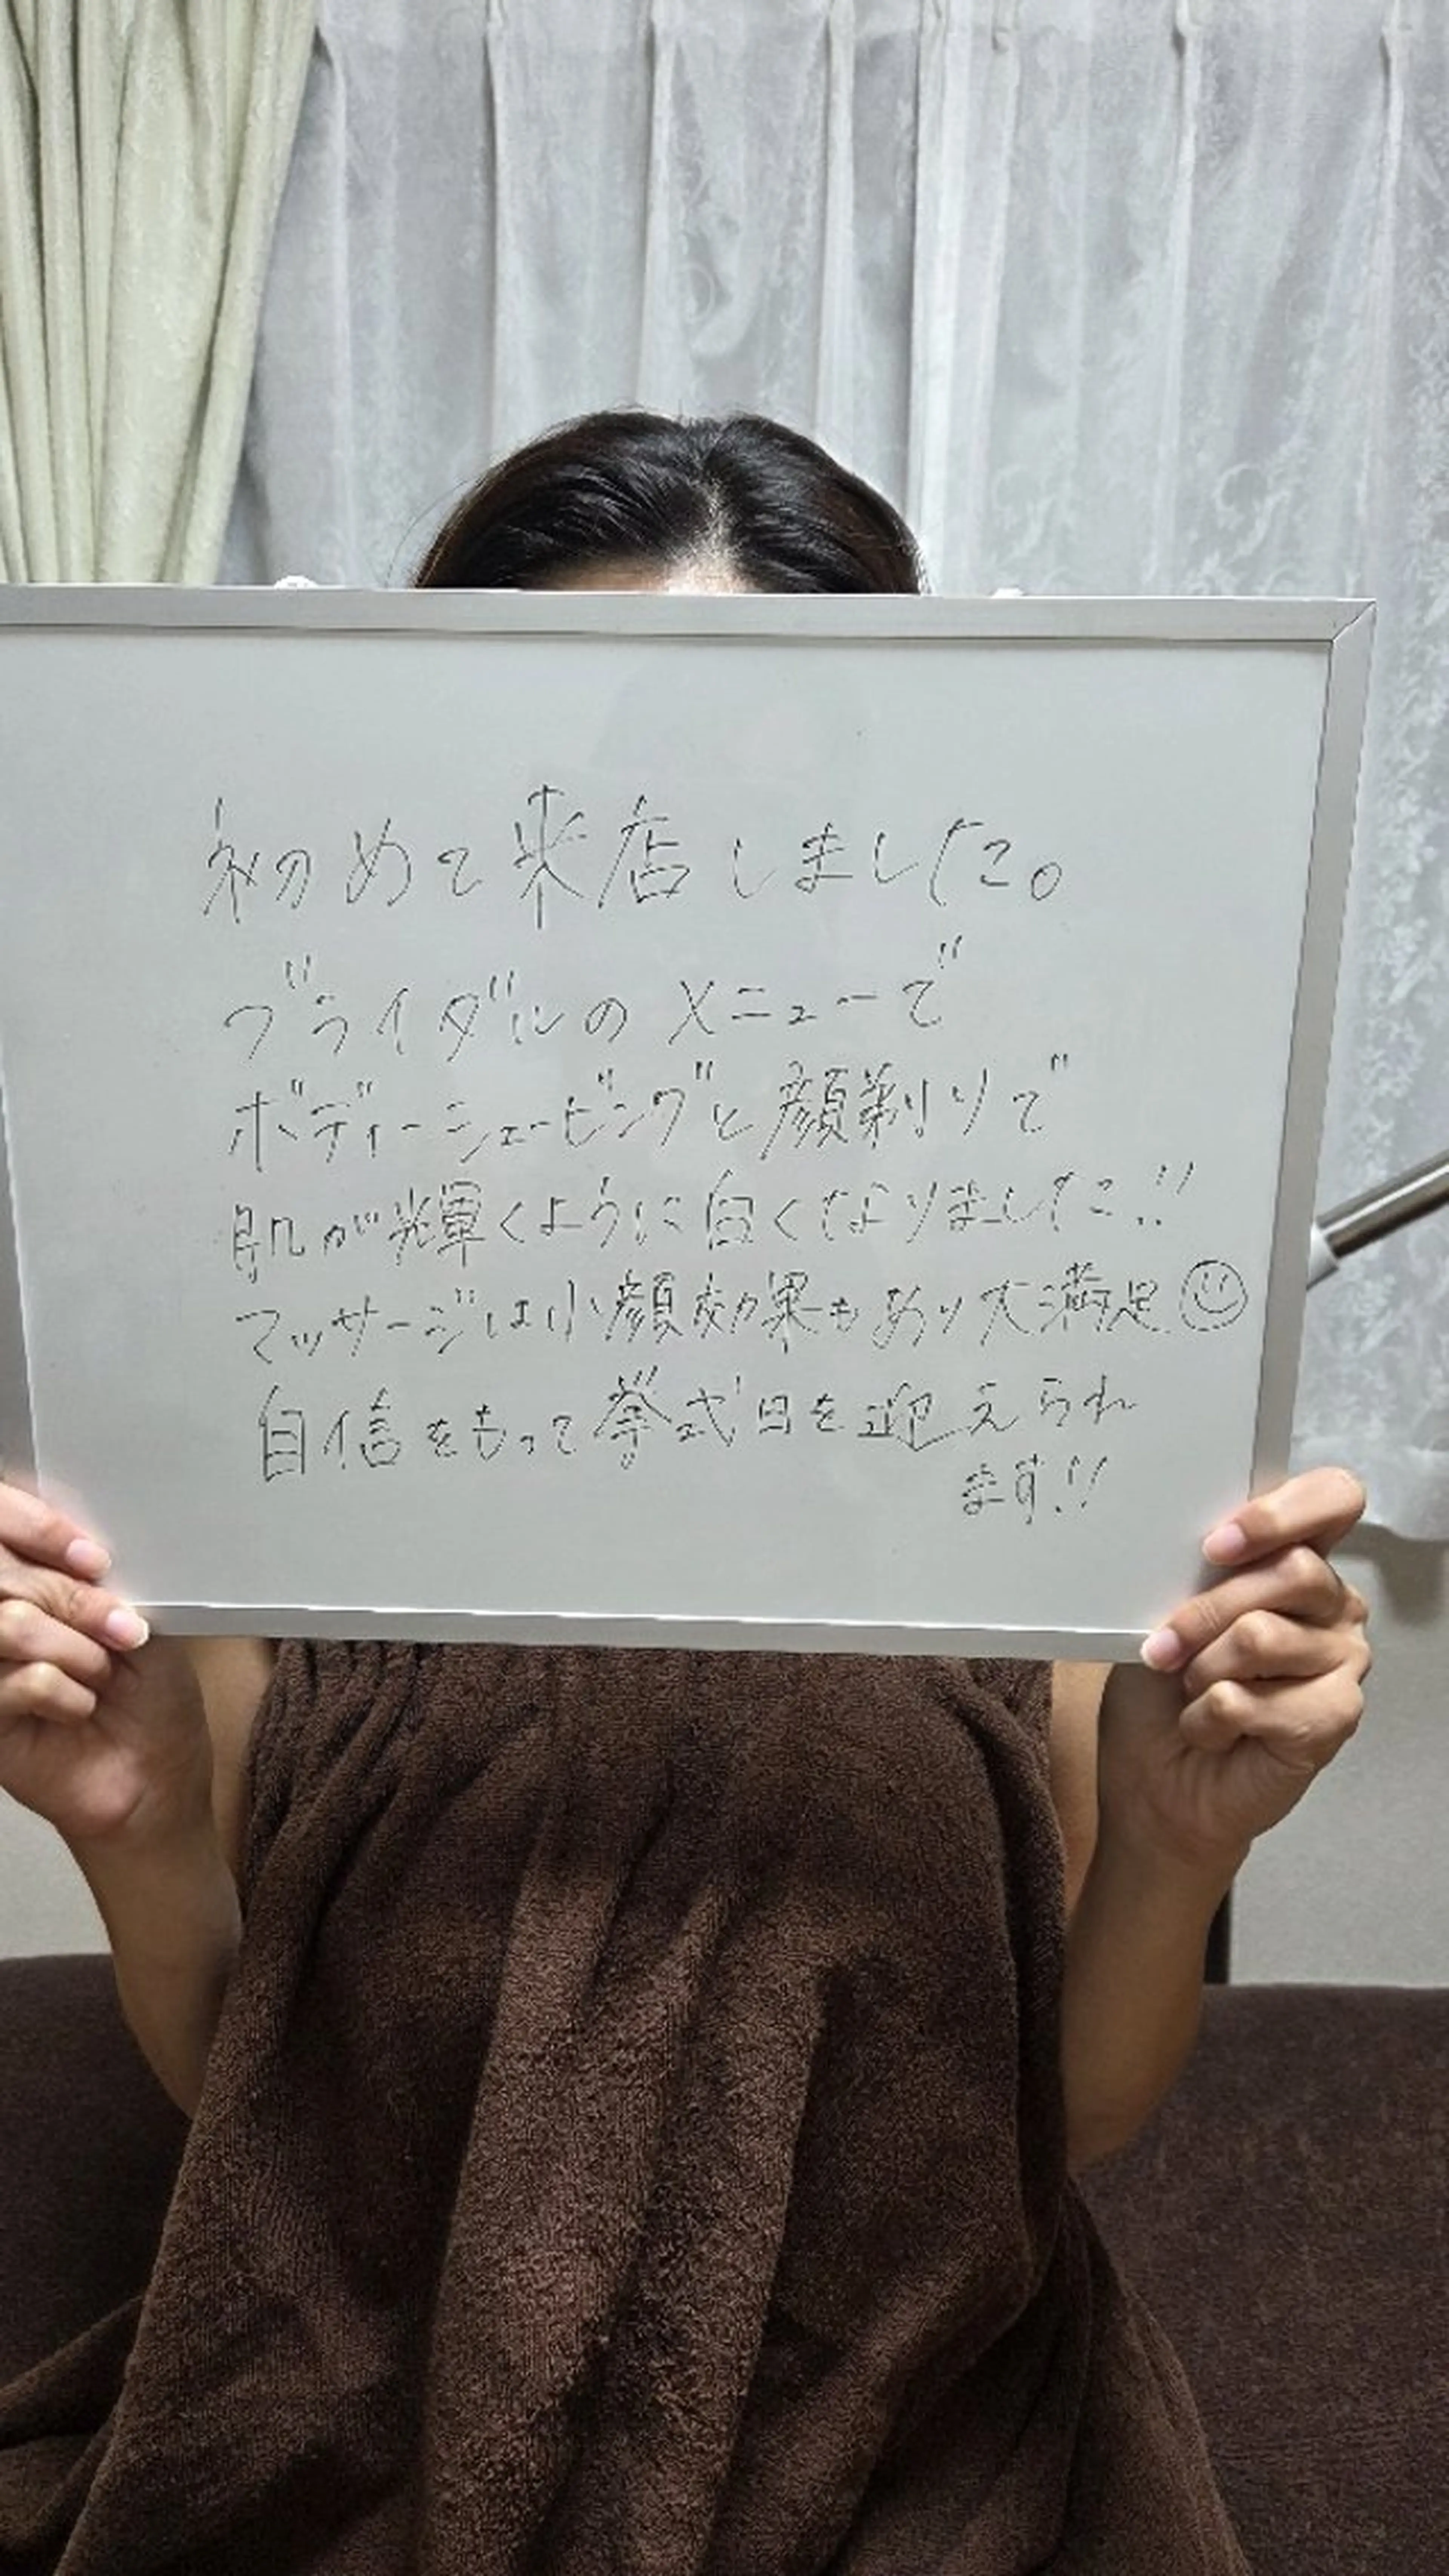 初めて来店しました。
ブライダルのメニューで
ボディーシェービングと顔剃りで
肌が輝くように白くなりました!!
マッサージは小顔効果もあり大満足
自信をもって挙式日を迎えられ
ます!!